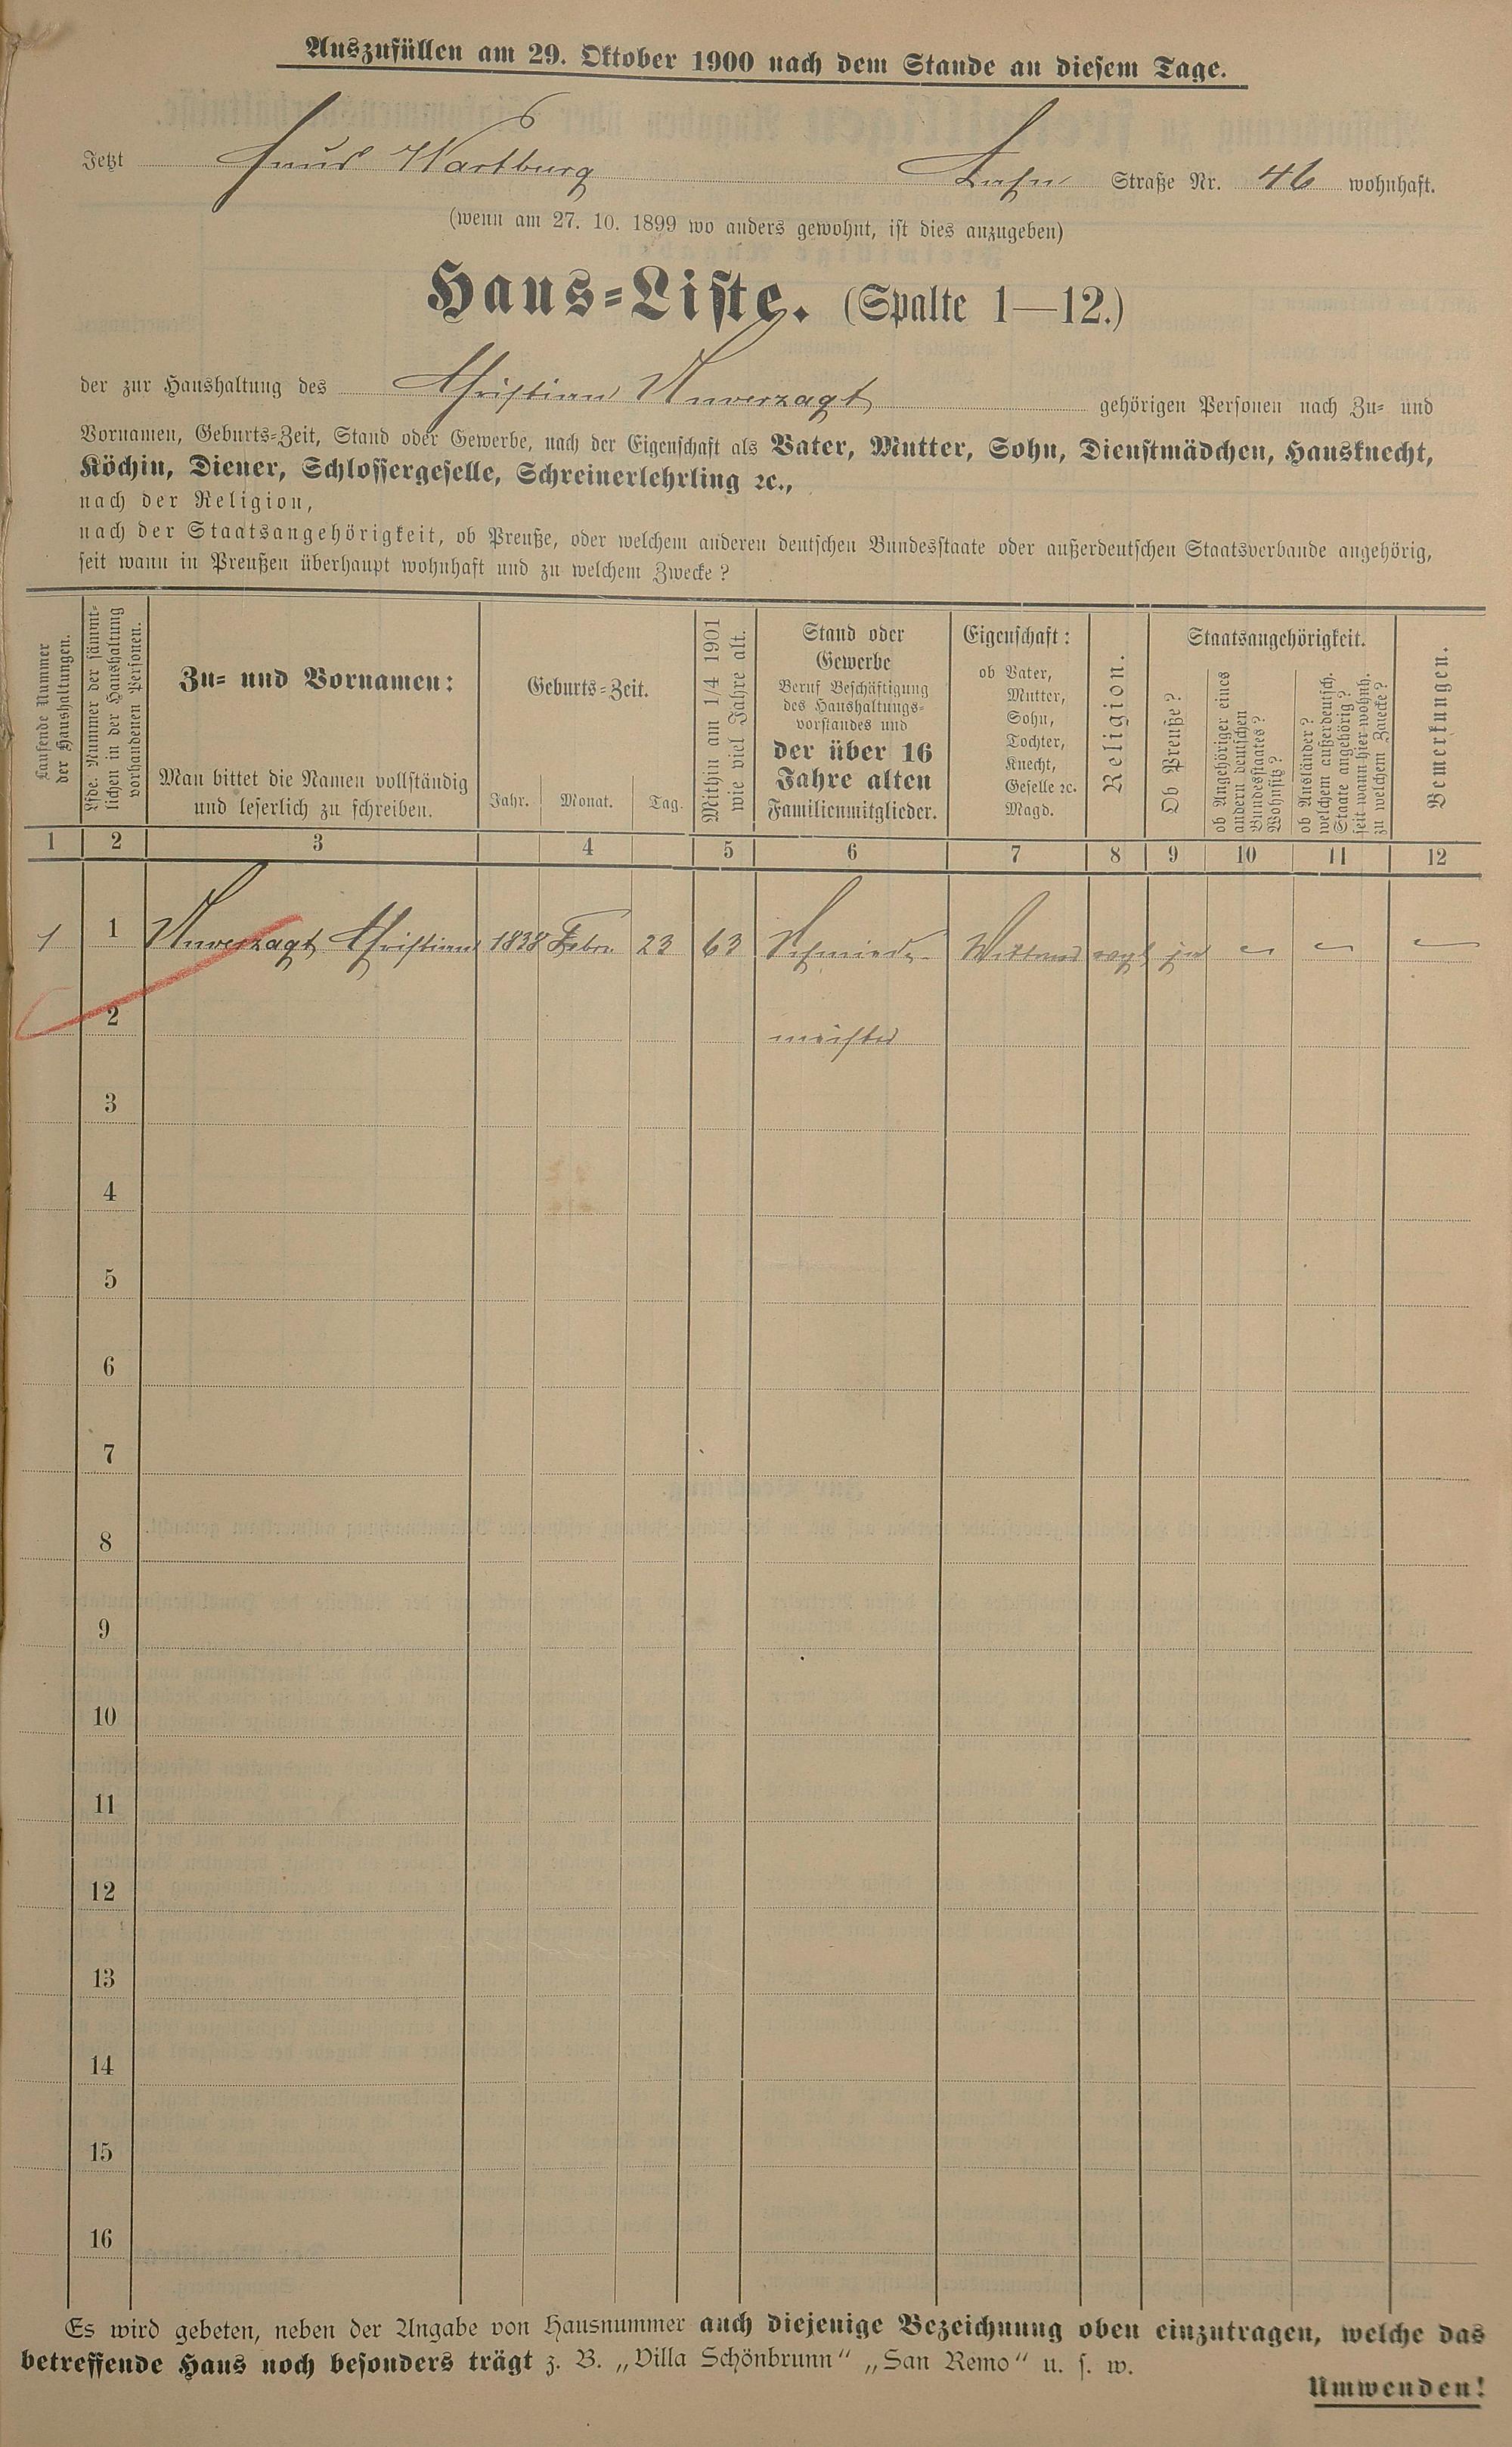 Auszufüllen am 29. Oktober 1900 nach dem Stande an diesem Tage.
Jetzt Haus Wartburg Lahn Straße Nr. 46 wohnhaft.
(wenn am 27. 10. 1899 wo anders gewohnt, ist dies anzugeben)
Haus-Liste. (Spalte 1—12.)
der zur Haushaltung des Christian Unverzagt gehörigen Personen nach Zu- und
Vornamen, Geburts-Zeit, Stand oder Gewerbe, nach der Eigenschaft als Vater, Mutter, Sohn, Dienstmädchen, Hausknecht,
Köchin, Diener, Schlossergeselle, Schreinerlehrling ꝛc.,
nach der Religion,
nach der Staatsangehörigkeit, ob Preuße, oder welchem anderen deutschen Bundesstaate oder außerdeutschen Staatsverbande angehörig,
seit wann in Preußen überhaupt wohnhaft und zu welchem Zwecke?
Laufende Nummer
der Haushaltungen.
Lfde. Nummer der sämmt-
lichen in der Haushaltung
vorhandenen Personen.
Zu- und Vornamen:
Man bittet die Namen vollständig
und leserlich zu schreiben.
Geburts-Zeit.
Jahr. Monat. Tag.
Mithin am 1/4 1901
wie viel Jahre alt.
Stand oder
Gewerbe
Beruf Beschäftigung
des Haushaltungs-
vorstandes und
der über 16
Jahre alten
Familienmitglieder.
Eigenschaft:
ob Vater,
Mutter,
Sohn,
Tochter,
Knecht,
Geselle ꝛc.
Magd.
Religion.
Staatsangehörigkeit.
Ob Preuße?
ob Angehöriger eines
andern deutschen
Bundesstaates?
Wohnsitz?
ob Ausländer?
welchem außerdeutsch.
Staate angehörig?
seit wann hier wohnh.
zu welchem Zwecke?
Bemerkungen.
1 2 3 4 5 6 7 8 9 10 11 12
1 1 Unverzagt Christian 1838 Febr. 23 63 Schmiede- Wittwer evgl ja — — —
2 meister
3
4
5
6
7
8
9
10
11
12
13
14
15
16
Es wird gebeten, neben der Angabe von Hausnummer auch diejenige Bezeichnung oben einzutragen, welche das
betreffende Haus noch besonders trägt z. B. „Villa Schönbrunn“ „San Remo“ u. s. w.
Umwenden!